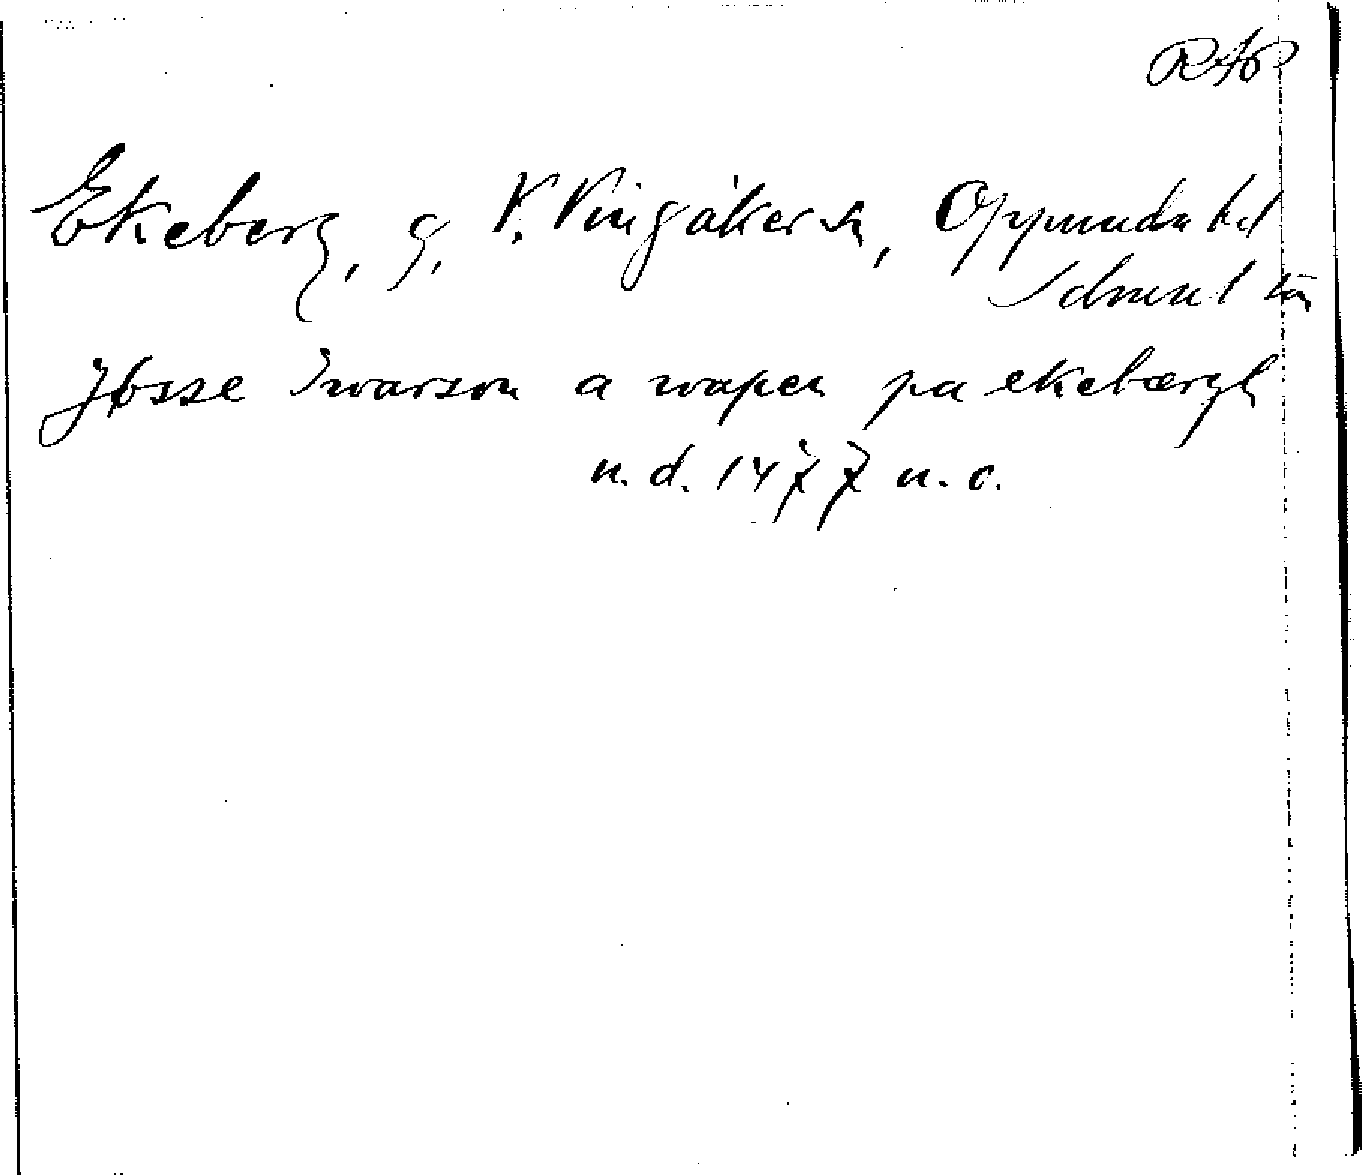 RAP
Ekeberg, g, V. Vingåker sn, Oppunda hd
Södermanl län
Jösse Iwarson a wapen pa ekebergh
n.d. 1477 n. o.